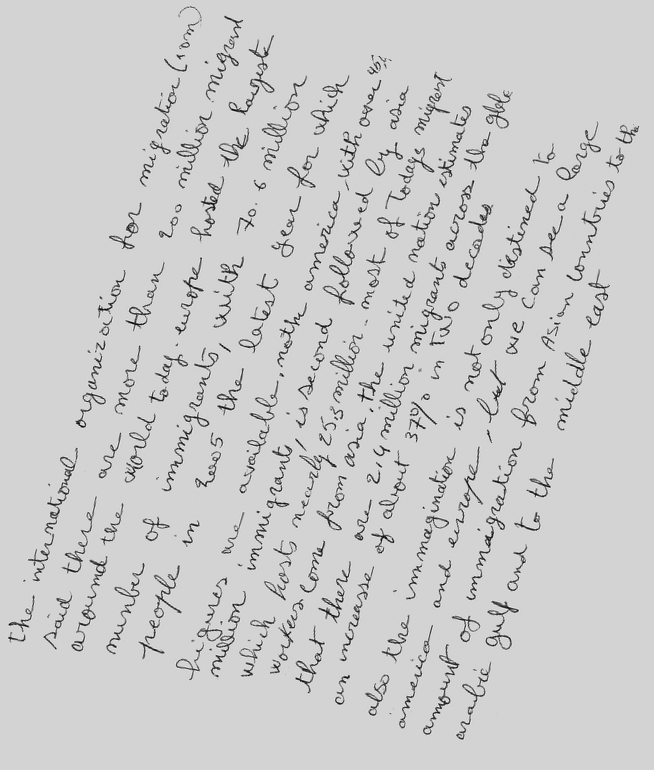 the international organization for migration (iom)
said there are more than 200 million migrant
around the world today. europe hosted the largest
number of immigrants, with 70.6 million
people in 2005 the latest year for which
figures are available. nothe america with over 45%
million immigrants, is second followed by asia
which hosts nearly 25,3 million. most of Todays migrent
workes come from asia, the united nation estimates
that there are 2,14 million migrants across the globe
an increasse of about 37% in Two decades
also the immagination is not only destined to
america and europe, but we can see a large
amount of immaigration from Asian countries to the
arabic gulf and to the middle east